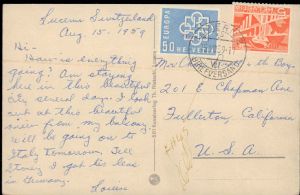 Lucern Switzerland
Aug. 15. 1959
Hi -
How is everything
going? Am staying
here in this beautiful
city several days. I look
out at this beautiful
from my balcony.
will be going on to
Italy tomorrow. Tell
Stoney I got his
in Germany.
EUROPA
50 HELVETIA
BRIEFVERSAND
Boy
201 E Chapman Ave
Fullerton, California
U. S. A.